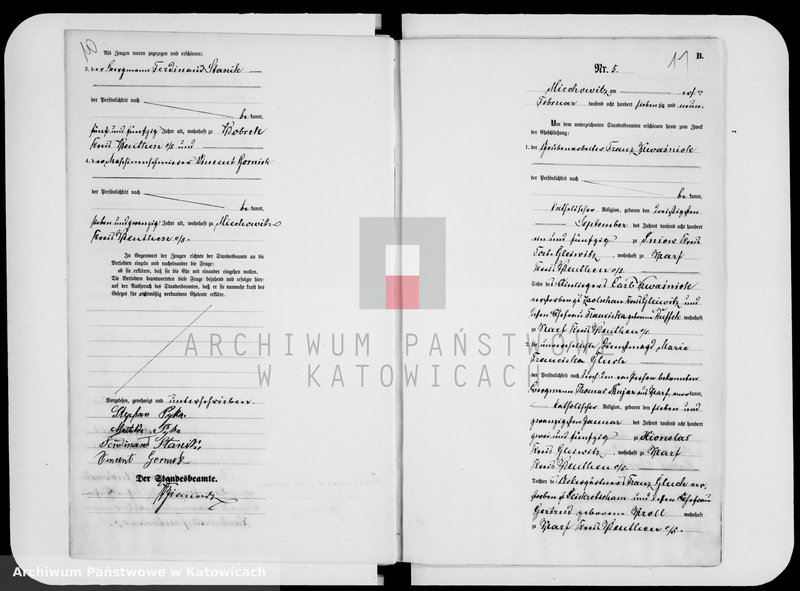 10
Als Zeugen waren zugezogen und erschienen:
3. der Bergmann Ferdinand Stanik
der Persönlichkeit nach
be kannt,
fünf und fünfzig Jahre alt, wohnhaft zu Bobrek
Kreis Beuthen o/s und
4. der Maschinenschmierer Vincent Gornik
der Persönlichkeit nach
be kannt,
sieben und zwanzig Jahre alt, wohnhaft zu Miechowitz
Kreis Beuthen o/s.
In Gegenwart der Zeugen richtete der Standesbeamte an die
Verlobten einzeln und nacheinander die Frage:
ob sie erklären, daß sie die Ehe mit einander eingehen wollen.
Die Verlobten beantworteten diese Frage bejahend und erfolgte hier-
auf der Ausspruch des Standesbeamten, daß er sie nunmehr kraft des
Gesetzes für rechtmäßig verbundene Eheleute erkläre.
Vorgelesen, genehmigt und unterschrieben.
Stephan Pyka
Mathilde Pyka
Ferdinand Stanik
Vincent Gornik
Der Standesbeamte.
11
B.
Nr. 5.
Miechowitz am
Februar tausend acht hundert siebenzig und neun.
Vor dem unterzeichneten Standesbeamten erschienen heute zum Zweck
der Eheschließung:
1. der Grubenarbeiter Franz Kwaśniok
der Persönlichkeit nach
be kannt,
katholischer Religion, geboren den dreißigsten
September des Jahres tausend acht hundert
ein und fünfzig zu Kreis
Tost Gleiwitz, wohnhaft zu Karf
Kreis Beuthen o/s
Sohn des Einliegers Carl Kwaśniok
verstorben zu Kreis Gleiwitz und
dessen Ehefrau Franciska geborene wohnhaft
zu Karf Kreis Beuthen o/s.
2. die unverehelichte Dienstmagd Marie
Franciska Gluch
der Persönlichkeit nach durch den von Person bekannten
Bergmann Thomas Kujar aus Karf, anerkannt,
katholischer Religion, geboren den sieben und
zwanzigsten Januar des Jahres tausend acht hundert
zwei und fünfzig zu
Kreis Gleiwitz, wohnhaft zu Karf
Kreis Beuthen o/s.
Tochter des Ackergärtners Franz Gluch ver-
storben zu Peiskretscham und dessen Ehefrau
Gertrud geborene Kroll wohnhaft
zu Karf Kreis Beuthen o/s.
ARCHIWUM PAŃSTWOWE
W KATOWICACH
Archiwum Państwowe w Katowicach